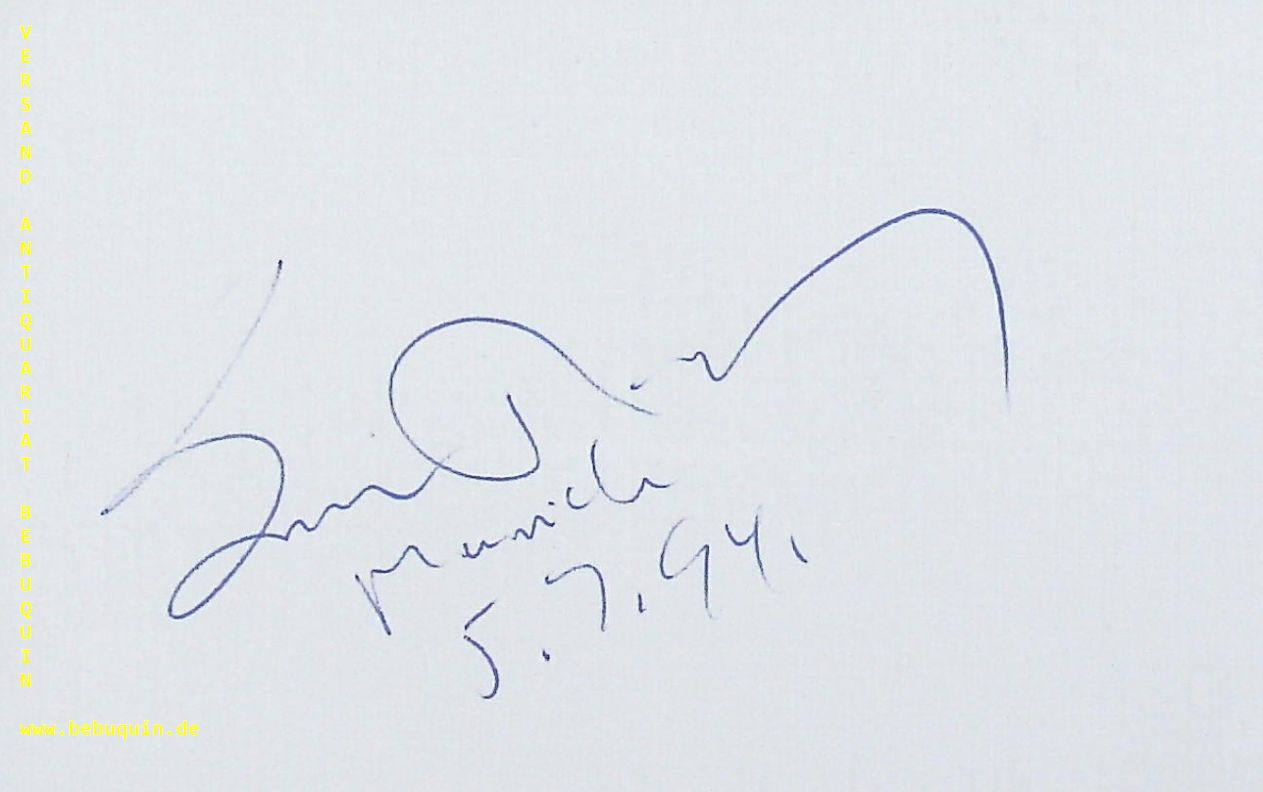 VERSAND ANTIQUARIAT BEBUQUIN
Munich
5.7.94.
www.bebuquin.de